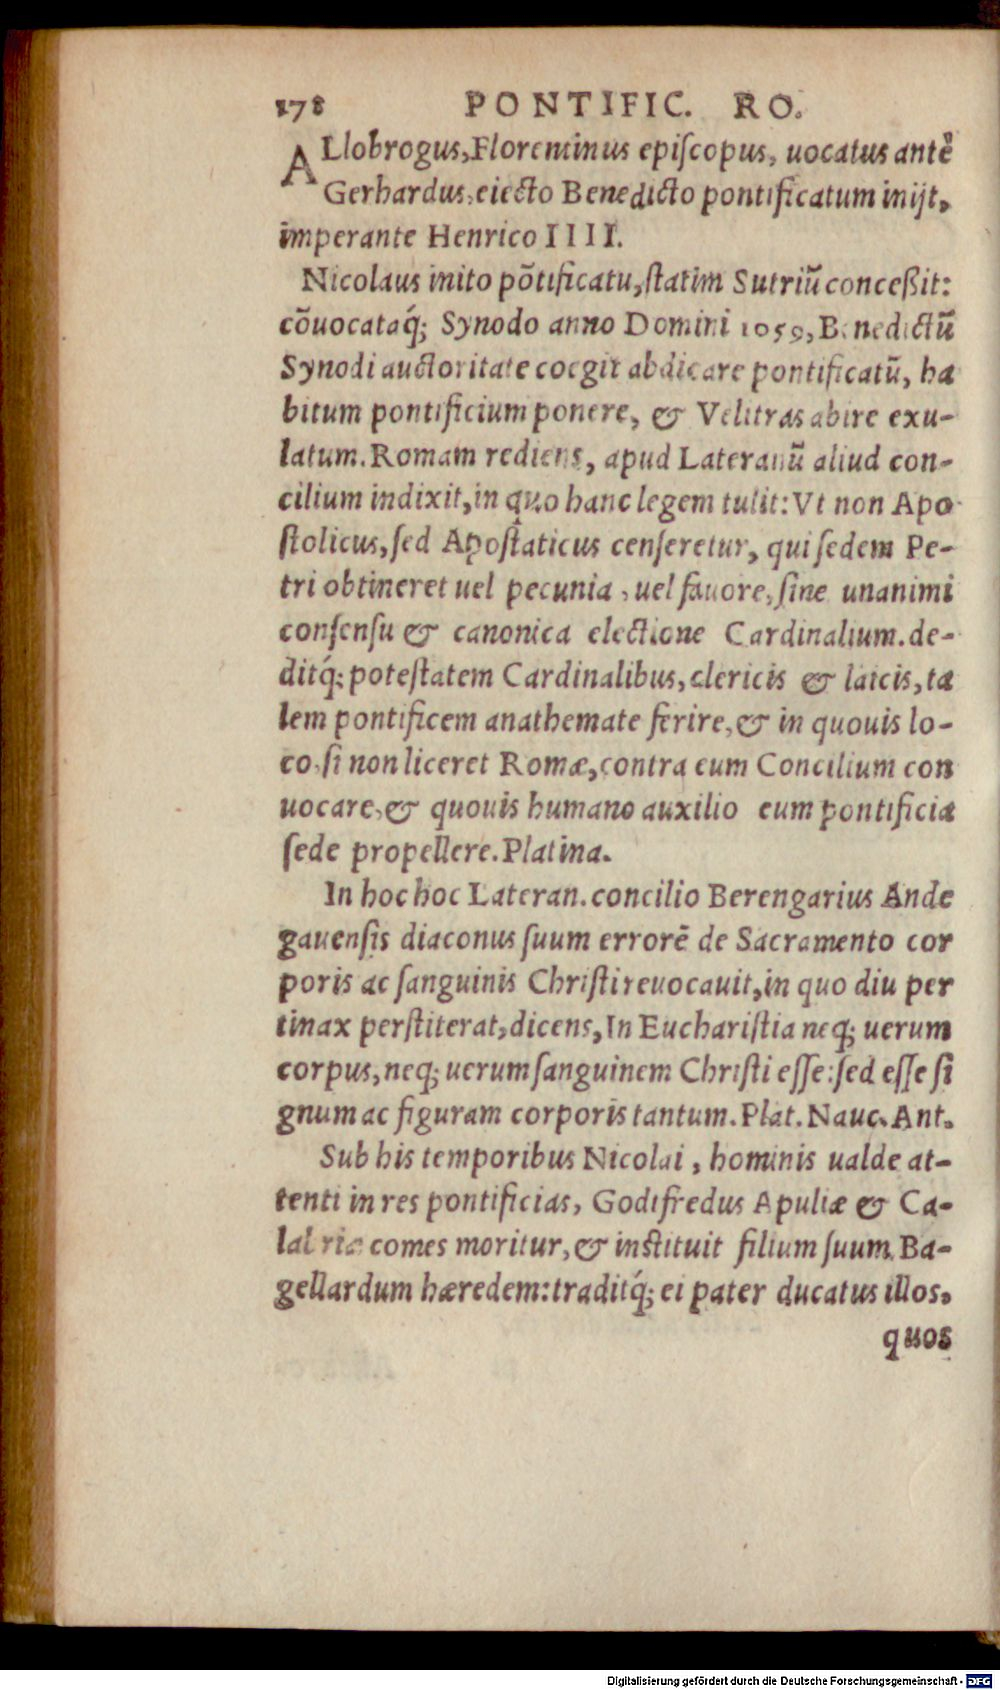 178 PONTIFIC. RO.
ALlobrogus, Florentinus epiſcopus, uocatus antẽ
Gerhardus, eiecto Benedicto pontificatum inijt,
imperante Henrico IIII.
Nicolaus inito põtificatu, ſtatim Sutriũ conceßit:
cõuocataq́; Synodo anno Domini 1059, Benedictũ
Synodi auctoritate coegit abdicare pontificatũ, ha
bitum pontificium ponere, & Velitras abire exu-
latum. Romam rediens, apud Lateranũ aliud con-
cilium indixit, in quo hanc legem tulit: Vt non Apo
ſtolicus, ſed Apoſtaticus cenſeretur, qui ſedem Pe-
tri obtineret uel pecunia, uel fauore, ſine unanimi
conſenſu & canonica electione Cardinalium. de-
ditq́; poteſtatem Cardinalibus, clericis & laicis, ta
lem pontificem anathemate ferire, & in quouis lo-
co, ſi non liceret Romæ, contra eum Concilium con
uocare, & quouis humano auxilio eum pontificia
ſede propellere. Platina.
In hoc hoc Lateran. concilio Berengarius Ande
gauenſis diaconus ſuum errorẽ de Sacramento cor
poris ac ſanguinis Chriſti reuocauit, in quo diu per
tinax perſtiterat, dicens, In Euchariſtia neq; uerum
corpus, neq; uerum ſanguinem Chriſti eſſe: ſed eſſe ſi
gnum ac figuram corporis tantum. Plat. Nauc. Ant.
Sub his temporibus Nicolai, hominis ualde at-
tenti in res pontificias, Godifredus Apuliæ & Ca-
labriæ comes moritur, & inſtituit filium ſuum Ba-
gellardum hæredem: traditq́; ei pater ducatus illos,
quos
Digitalisierung gefördert durch die Deutsche Forschungsgemeinschaft - DFG